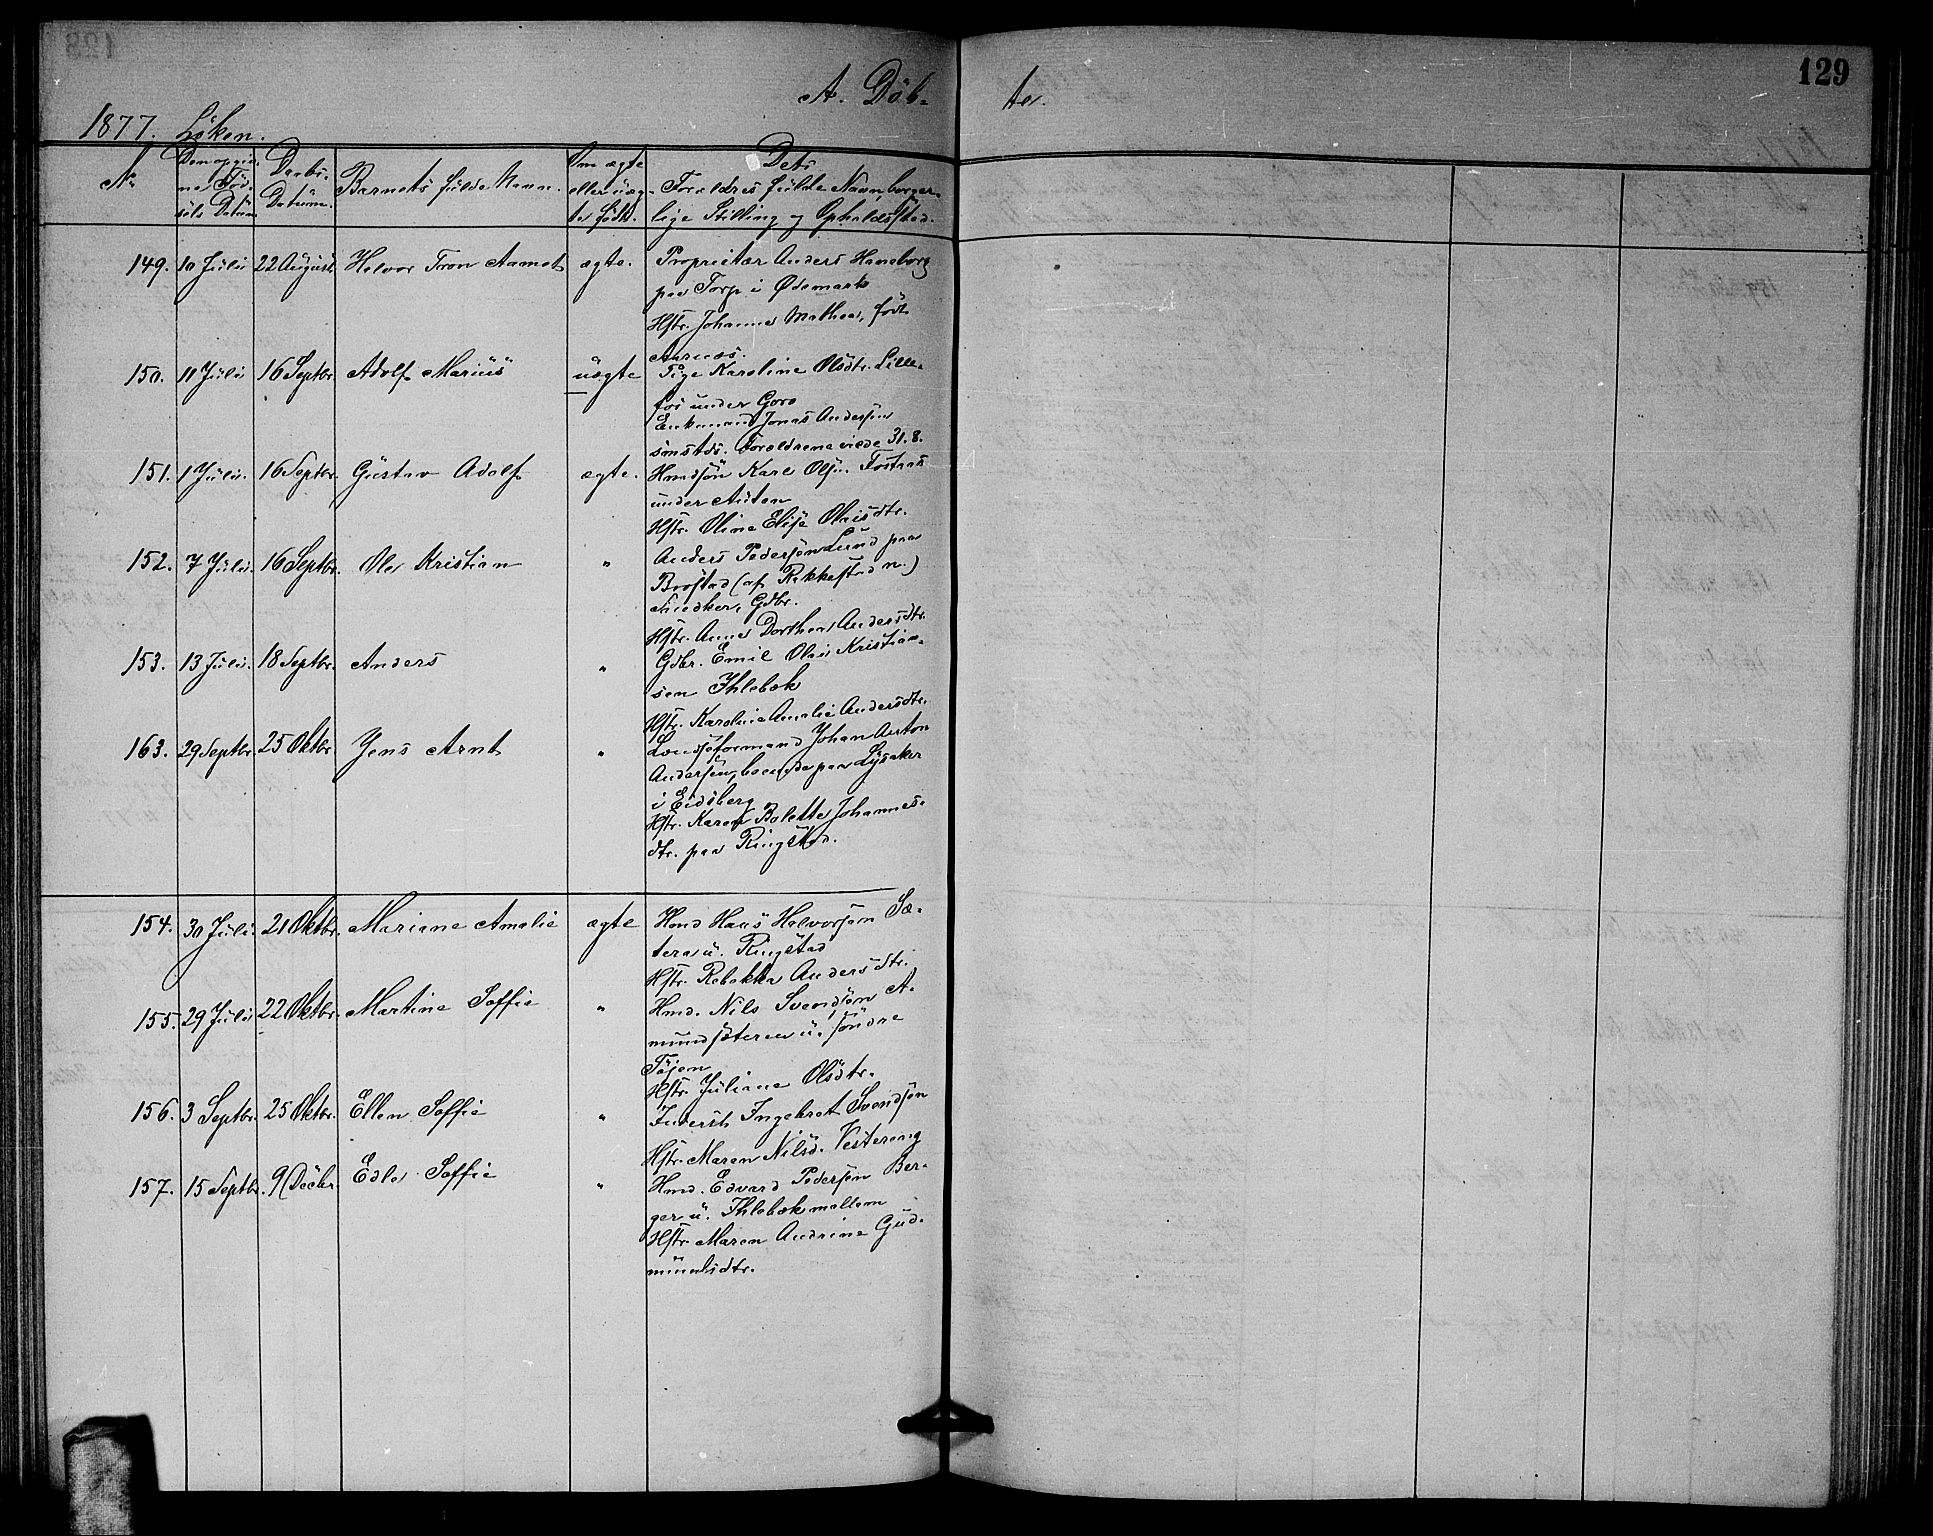 129
A. Döb- ter.
1877. Löken.
No
Den opgiv-
ne Föd-
sels Datum
Daabs-
Datum.
Barnets fulde Navn.
Om ægte
eller uæg-
te født.
Dets
Forældres fulde Navn, borger-
lige Stilling og Opholdssted.
149. 10 Juli 22 August Halvor Tron Aamot ægte. Proprietær Anders Haneborg
paa Torp i Ødemark
Hstr. Johanne Mathea, født
Aarnæs.
150. 11 Juli 16 Septbr. Adolf Marius uægte Pige Karoline Olsdtr. Lille-
fos under Gore
Enkemand Jonas Andersen
smstds. Forældrene viede 31.8.
151. 1 Juli. 16 Septbr. Gustav Adolf ægte. Hmdsjön Karl Olsen
under
Hstr. Oline Elise Olaisdtr.
152. 7 Juli. 16 Septbr. Ole Kristian " Anders Pedersen Lund paa
Brostad (af Rakkestad n.)
Snedker, Gdbr.
Hstr. Anne Dorthea Andersdtr.
153. 13 Juli. 18 Septbr. Anders " Gdbr. Emil Olai Kristian-
sen Ihlebæk
Hstr. Karoline Amalie Andersdtr.
163. 29 Septbr. 25 Oktbr. Jens Arnt " Johan Anton
Andersen, boende paa Lysaker
i Eidsberg
Hstr. Karen Bolette Johannes-
dtr. paa Ringstad.
154. 30 Juli. 21 Oktbr. Mariane Amalie ægte Hmd Hans Halvorsen Sæ-
teren u. Ringstad
Hstr. Rebekka Andersdtr.
155. 29 Juli 22 Oktbr. Martine Soffie " Hmd. Nils Svendsen A-
mundsæteren u. söndre
Töjen
Hstr. Juliane Olsdtr.
156. 3 Septbr. 25 Oktbr. Ellen Soffie " Inderst Ingebret Svendsen
Hstr. Maren Nilsd. Vestereng
157. 15 Septbr. 9 Decbr. Edle Soffie " Hmd. Edvard Pedersen Ber-
ger u. Ihlebæk mellem
Hstr. Maren Andrine Gud-
mundsdtr.